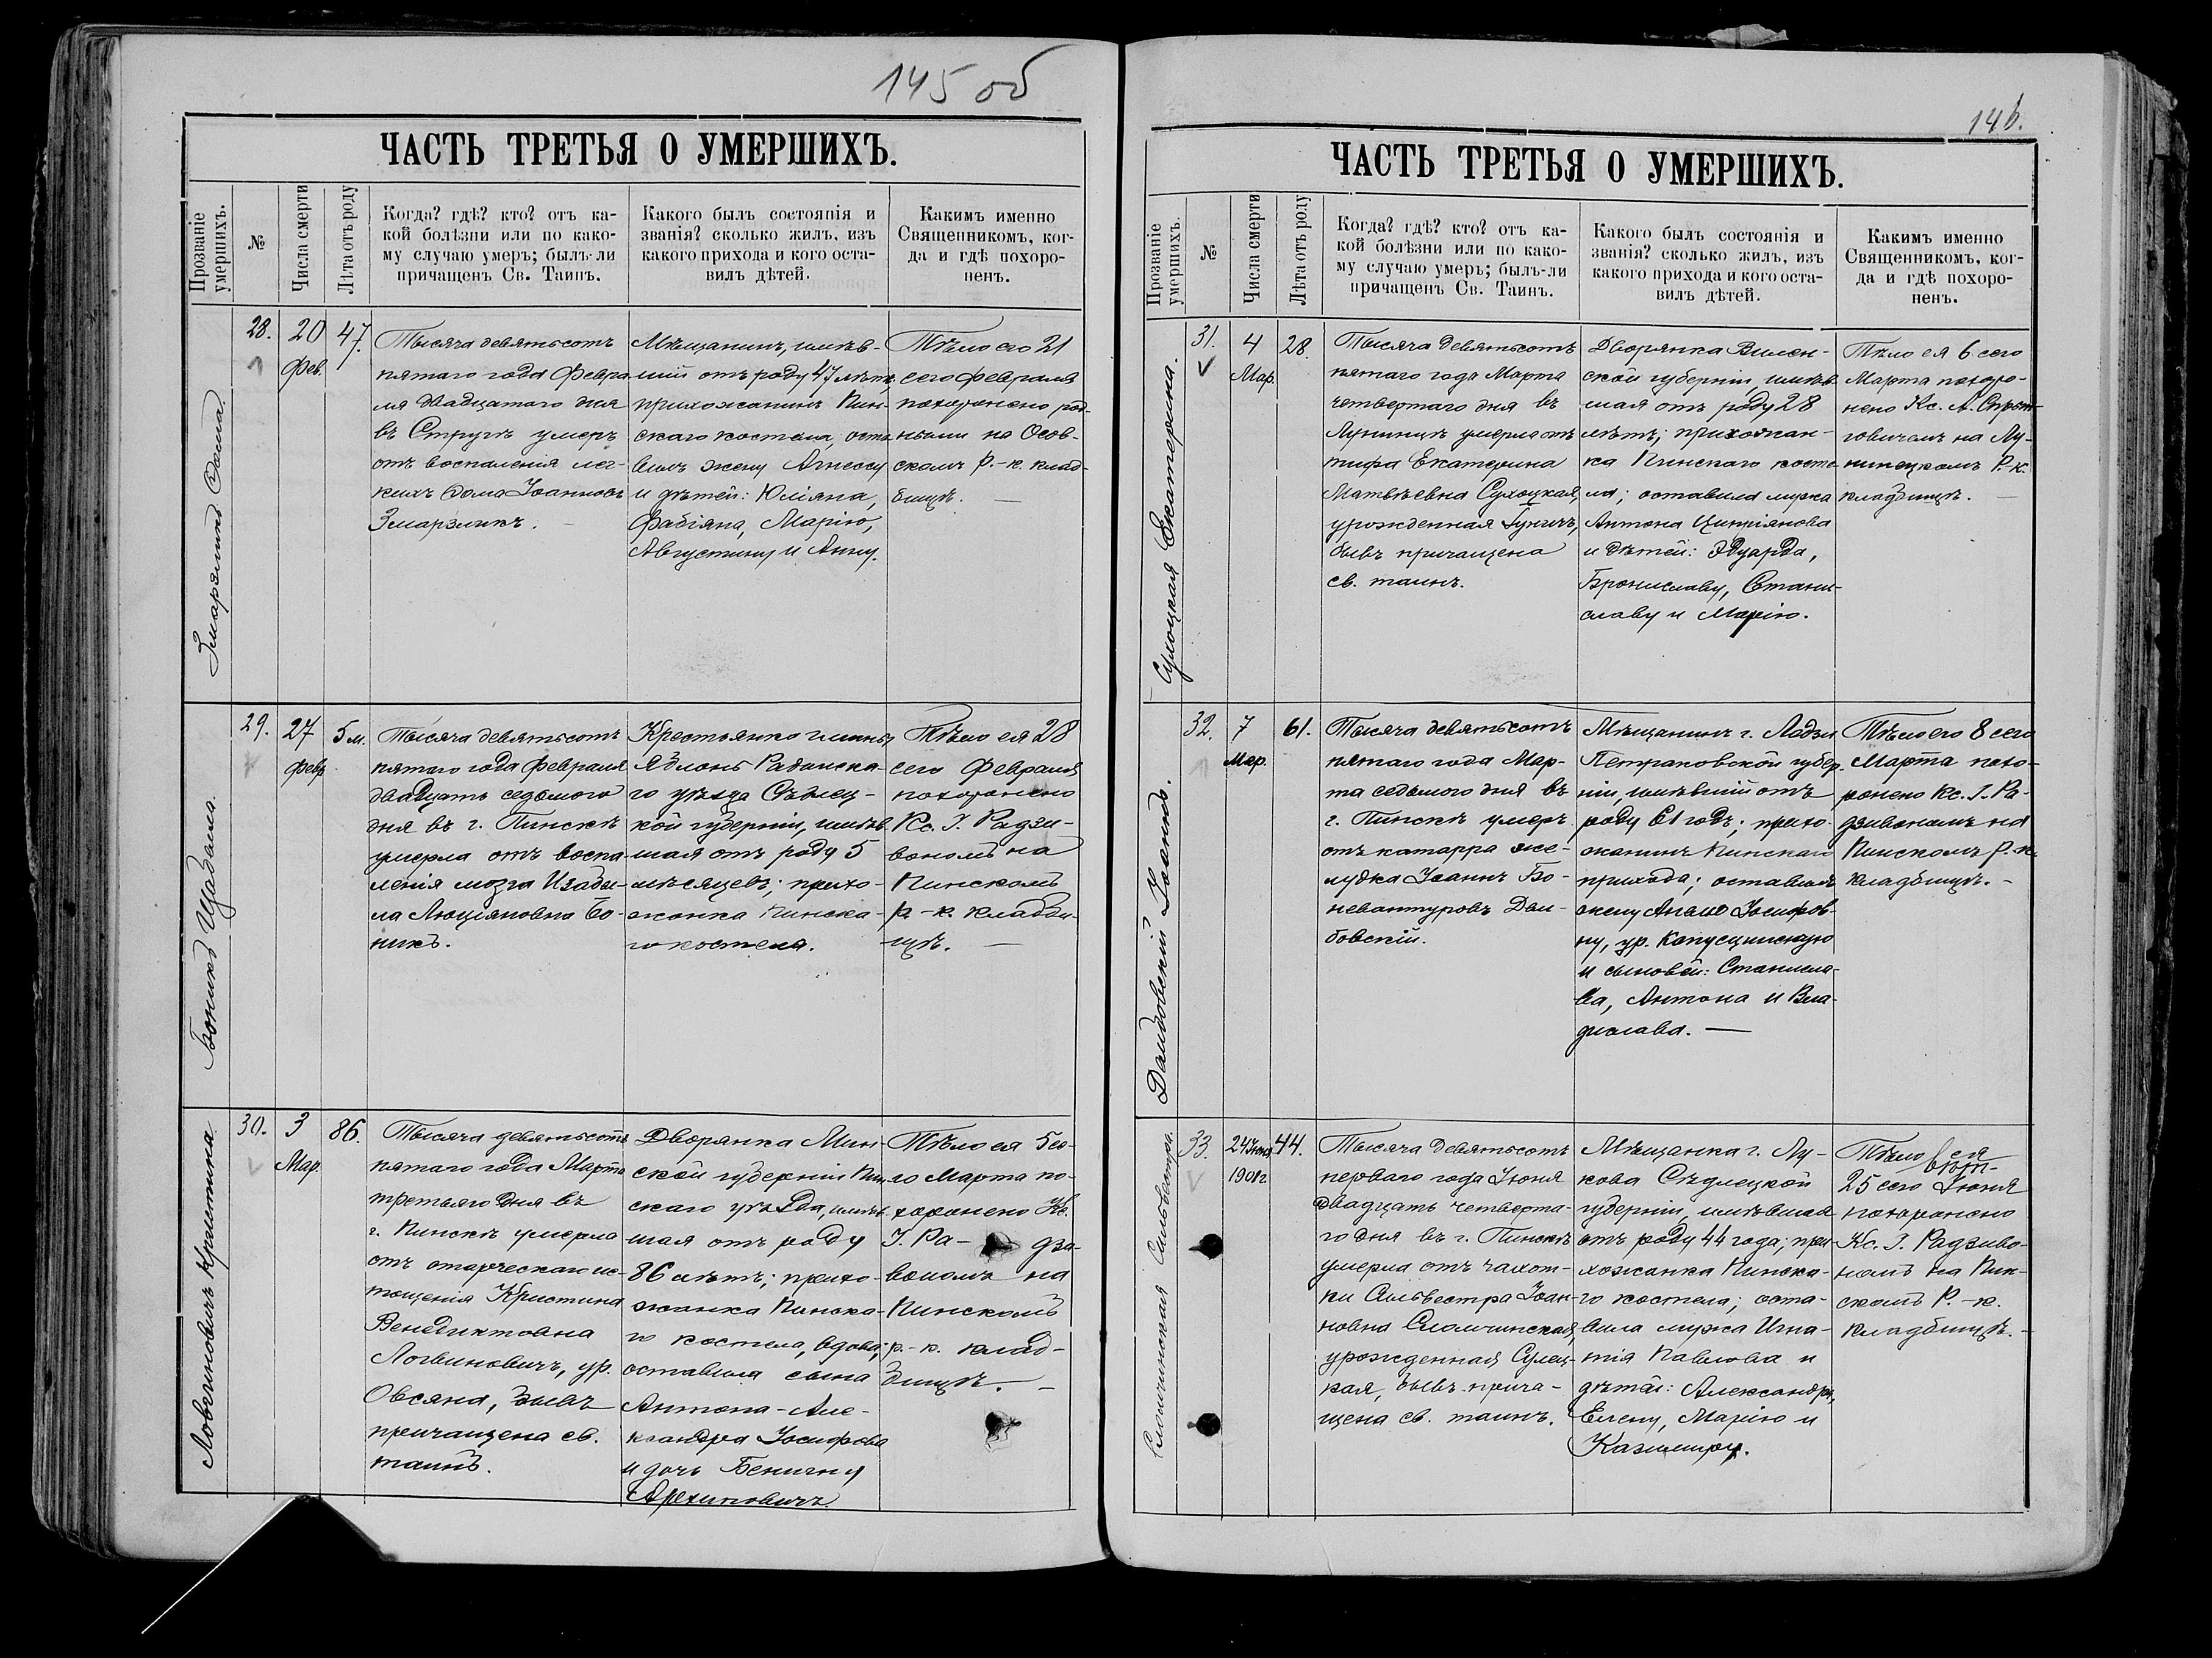 145 об
ЧАСТЬ ТРЕТЬЯ О УМЕРШИХЪ.
Прозваніе умершихъ.
№
Числа смерти
Лѣта отъ роду
Когда? гдѣ? кто? отъ ка-
кой болѣзни или по како-
му случаю умеръ; былъ-ли
причащенъ Св. Таинъ.
Какого былъ состоянія и
званія? сколько жилъ, изъ
какого прихода и кого оста-
вилъ дѣтей.
Какимъ именно
Священникомъ, ког-
да и гдѣ похоро-
ненъ.
Змарзликъ Ѳома.
28.
20
Фев.
47.
Тысяча девятьсотъ
пятаго года Февра
ля двадцатаго дня
въ Стругѣ умеръ
отъ воспаленія лег-
кихъ Ѳома Іоанновъ
Змарзликъ.
Мѣщанинъ, имѣв-
шій отъ роду 47 лѣтъ,
прихожанинъ Пин-
скаго костела, оста
вилъ жену Агнессу
и дѣтей: Юліяна,
Фабіяна, Марію,
Августину и Анну.
Тѣло его 21
сего Февраля
похоронено род-
ными на Осов-
скомъ Р.-к. клад-
бищѣ. —
Боникъ Изабела.
29.
27
Февр
5 м.
Тысяча девятьсотъ
пятаго года Февраля
двадцать седьмого
дня въ г. Пинскѣ
умерла отъ воспа
ленія мозга Изабе-
ла Люціяновна Бо-
никъ.
Крестьянка гмины
Яблонь Радинска-
го уѣзда Сѣдлец-
кой губерніи, имѣв
шая отъ роду 5
мѣсяцевъ; прихо-
жанка Пинска-
го костела.
Тѣло ея 28
сего Февраля
похоронено
Кс. І. Радзи-
вономъ на
Пинскомъ
р.-к. кладби-
щѣ. —
Ловгиновичъ Кристина.
30.
3
Мар.
86.
Тысяча девятьсотъ
пятаго года Марта
третьяго дня въ
г. Пинскѣ умерла
отъ старческаго ис-
тощенія Кристина
Венедиктовна
Логвиновичъ, ур.
Овсяна, бывъ
причащена св.
таинъ.
Дворянка Мин-
ской губерніи Пин
скаго уѣзда, имѣв
шая отъ роду
86 лѣтъ; прихо-
жанка Пинска-
го костела, вдова;
оставила сына
Антона-Але-
ксандра Іосифова
и дочь Бенигну
Арехиповичъ.
Тѣло ея 5 се-
го Марта по-
хоронено Кс.
І. Ра- дзи-
вономъ на
Пинскомъ
р.-к. клад-
бищѣ. —
146.
ЧАСТЬ ТРЕТЬЯ О УМЕРШИХЪ.
Прозваніе умершихъ.
№
Числа смерти
Лѣта отъ роду
Когда? гдѣ? кто? отъ ка-
кой болѣзни или по како-
му случаю умеръ; былъ-ли
причащенъ Св. Таинъ.
Какого былъ состоянія и
званія? сколько жилъ, изъ
какого прихода и кого оста-
вилъ дѣтей.
Какимъ именно
Священникомъ, ког-
да и гдѣ похоро-
ненъ.
Сухоцкая Екатерина.
31.
4
Мар.
28.
Тысяча девятьсотъ
пятаго года Марта
четвертаго дня въ
Лунинцѣ умерла отъ
тифа Екатерина
Матвѣевна Сухоцкая,
урожденная Гуничъ,
бывъ причащена
св. таинъ.
Дворянка Вилен-
ской губерніи, имѣв
шая отъ роду 28
лѣтъ; прихожан-
ка Пинскаго косте
ла; оставила мужа
Антона Ципріянова
и дѣтей: Эдуарда,
Брониславу, Стани-
славу и Марію.
Тѣло ея 6 сего
Марта похоро-
нено Кс. А.
говичемъ на Лу-
нинецкомъ Р.-к.
кладбищѣ. —
Домбовскій Іоаннъ.
32.
7
Мар.
61.
Тысяча девятьсотъ
пятаго года Мар-
та седьмого дня въ
г. Пинскѣ умеръ
отъ катарра же-
лудка Іоаннъ Бо-
невантуровъ Дом-
бовскій.
Мѣщанинъ г. Лодзи
Петраковской губер.
ніи, имѣвшій отъ
роду 61 годъ; прихо-
жанинъ Пинскаго
прихода; оставилъ
жену Анелю Іосифов-
ну, ур. Капусцинскую
и сыновей: Станисла-
ва, Антона и Вла-
дислава. —
Тѣло его 8 сего
Марта похо-
ронено Кс. І. Ра-
дзивономъ на
Пинскомъ Р.-к.
кладбищѣ. —
Сломчинская Сильвестра.
33.
24 Іюня
1901 г
44.
Тысяча девятьсотъ
перваго года Іюня
двадцать четверта-
го дня въ г. Пинскѣ
умерла отъ чахот-
ки Сильвестра Іоан-
новна Сломчинская,
урожденная Сулец-
кая, бывъ прича-
щена св. таинъ.
Мѣщанка г. Лу-
кова Сѣдлецкой
губерніи, имѣвшая
отъ роду 44 года; при-
хожанка Пинска-
го костела; оста-
вила мужа Игна-
тія Павлова и
дѣтей: Александру,
Елену, Марію и
Казимиру.
Тѣло ея
25 сего Іюня
похоронено
Кс. І. Радзиво-
номъ на Пин-
скомъ Р.-к.
кладбищѣ. —